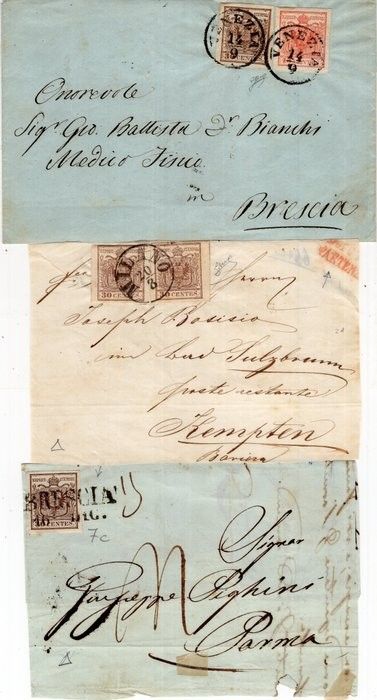 VENEZIA
14
9
VENEZIA
14
9
Onorevole
Sigr Gio. Battista Dr Bianchi
Medico Fisico
in
Brescia
MILANO
20
8
30 CENTES
30 CENTES
Herrn
Joseph Bosisio
im bad Sulzbrunn
poste restante
Kempten
Baviera
BRESCIA
DIC.
CENTES
7c
Signor
Giuseppe Pighini
Parma